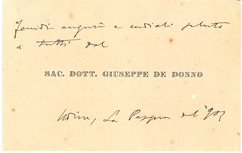 Fervidi auguri e cordiali saluti
a tutti dal
SAC. DOTT. GIUSEPPE DE DONNO
Udine, La Pasqua